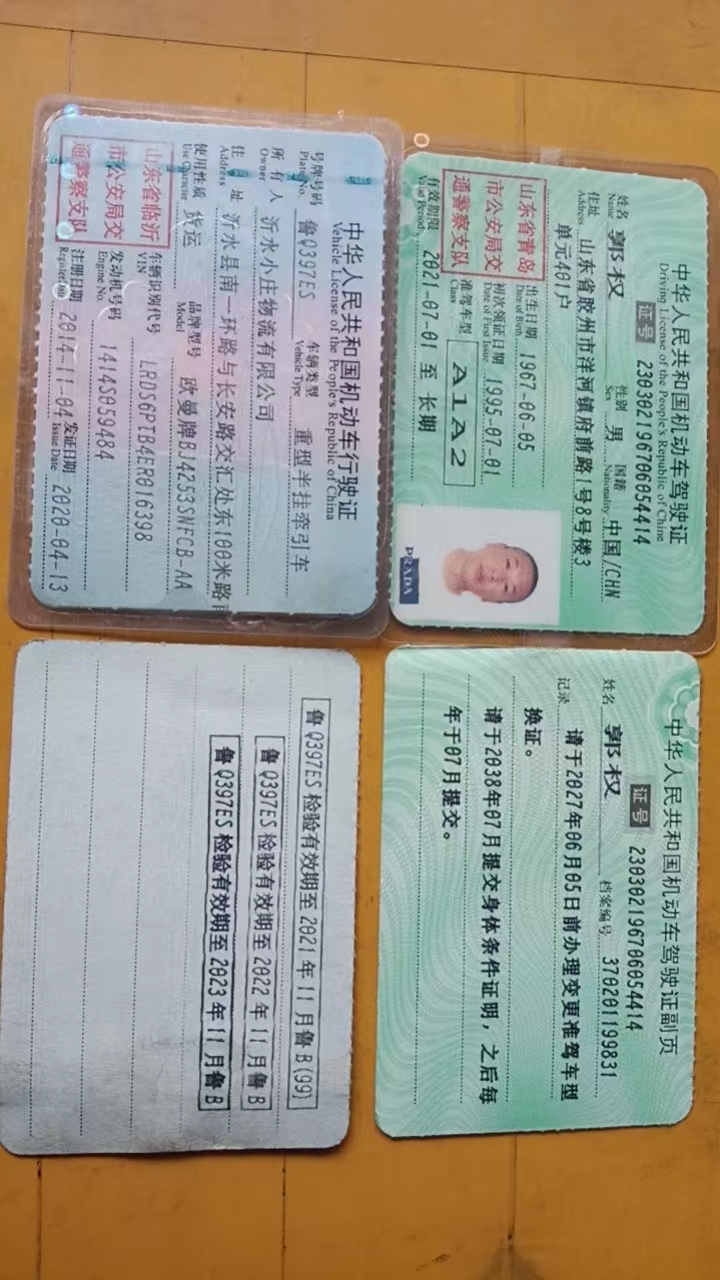 中华人民共和国机动车驾驶证
Driving License of the People's Republic of China
证号 230302196706054414
姓名 郭权 性别 男 国籍 中国/CHN
Name Sex Nationality
住址 山东省胶州市洋河镇府前路1号8号楼3
Address 单元401户
出生日期 1967-06-05
Date of Birth
山东省青岛
市公安局交
通警察支队
初次领证日期 1995-07-01
Date of First Issue
准驾车型 A1A2
Class
有效期限 2021-07-01 至 长期
Valid Period
PRADA
中华人民共和国机动车驾驶证副页
证号 230302196706054414
姓名 郭权 档案编号 370201199831
记录 请于2027年06月05日前办理变更准驾车型
换证。
请于2038年07月提交身体条件证明，之后每
年于07月提交。
中华人民共和国机动车行驶证
Vehicle License of the People's Republic of China
号牌号码 鲁Q397ES 车辆类型 重型半挂牵引车
Plate No. Vehicle Type
所有人 沂水小庄物流有限公司
Owner
住址 沂水县南一环路与长安路交汇处东100米路
Address
使用性质 货运 品牌型号 欧曼牌BJ4253SNFCB-AA
Use Character Model
山东省临沂
市公安局交
通警察支队
车辆识别代号 LRDS6PTB4ER016398
VIN
发动机号码 1414S059484
Engine No.
注册日期 2014-11-04 发证日期 2020-04-13
Register Date Issue Date
鲁Q397ES 检验有效期至 2021 年 11 月鲁 B(99)
鲁Q397ES 检验有效期至 2022 年 11 月鲁 B
鲁Q397ES 检验有效期至 2023 年 11 月鲁 B